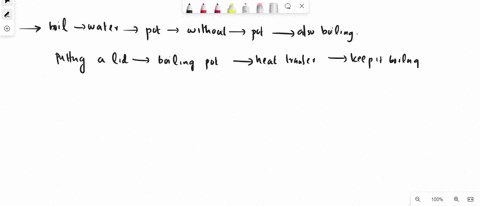 → boil → water → pot → without → pot → also boiling.
Putting a lid → boiling pot → heat transfer → keep it boiling
100%